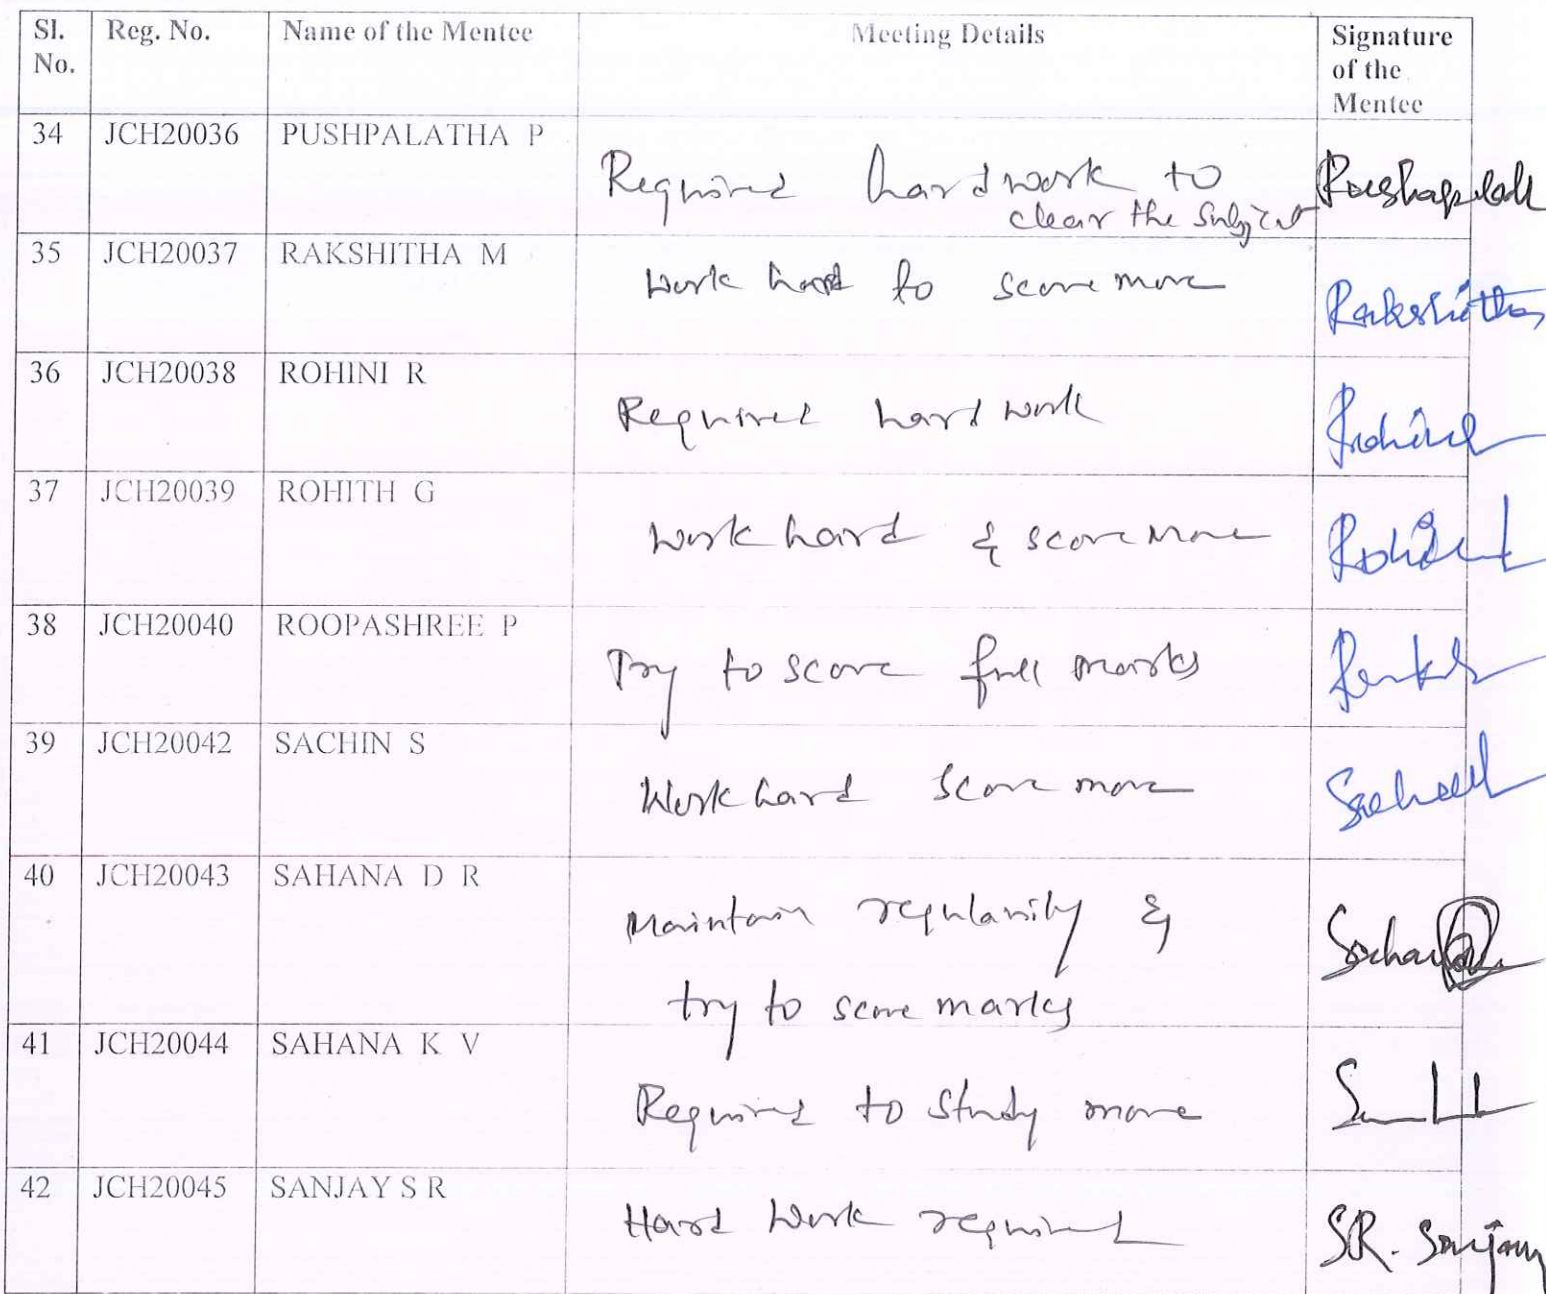 Sl. No. Reg. No. Name of the Mentee Meeting Details Signature of the Mentee
34 JCH20036 PUSHPALATHA P Required hardwork to
clear the Subject
35 JCH20037 RAKSHITHA M Work hard to score more Rakshitha
36 JCH20038 ROHINI R Required hard work
37 JCH20039 ROHITH G Work hard & score more
38 JCH20040 ROOPASHREE P Try to score full marks
39 JCH20042 SACHIN S Work hard score more
40 JCH20043 SAHANA D R Maintain regularity &
try to score marks
41 JCH20044 SAHANA K V Required to Study more
42 JCH20045 SANJAY S R Hard Work required SR. Sanjay